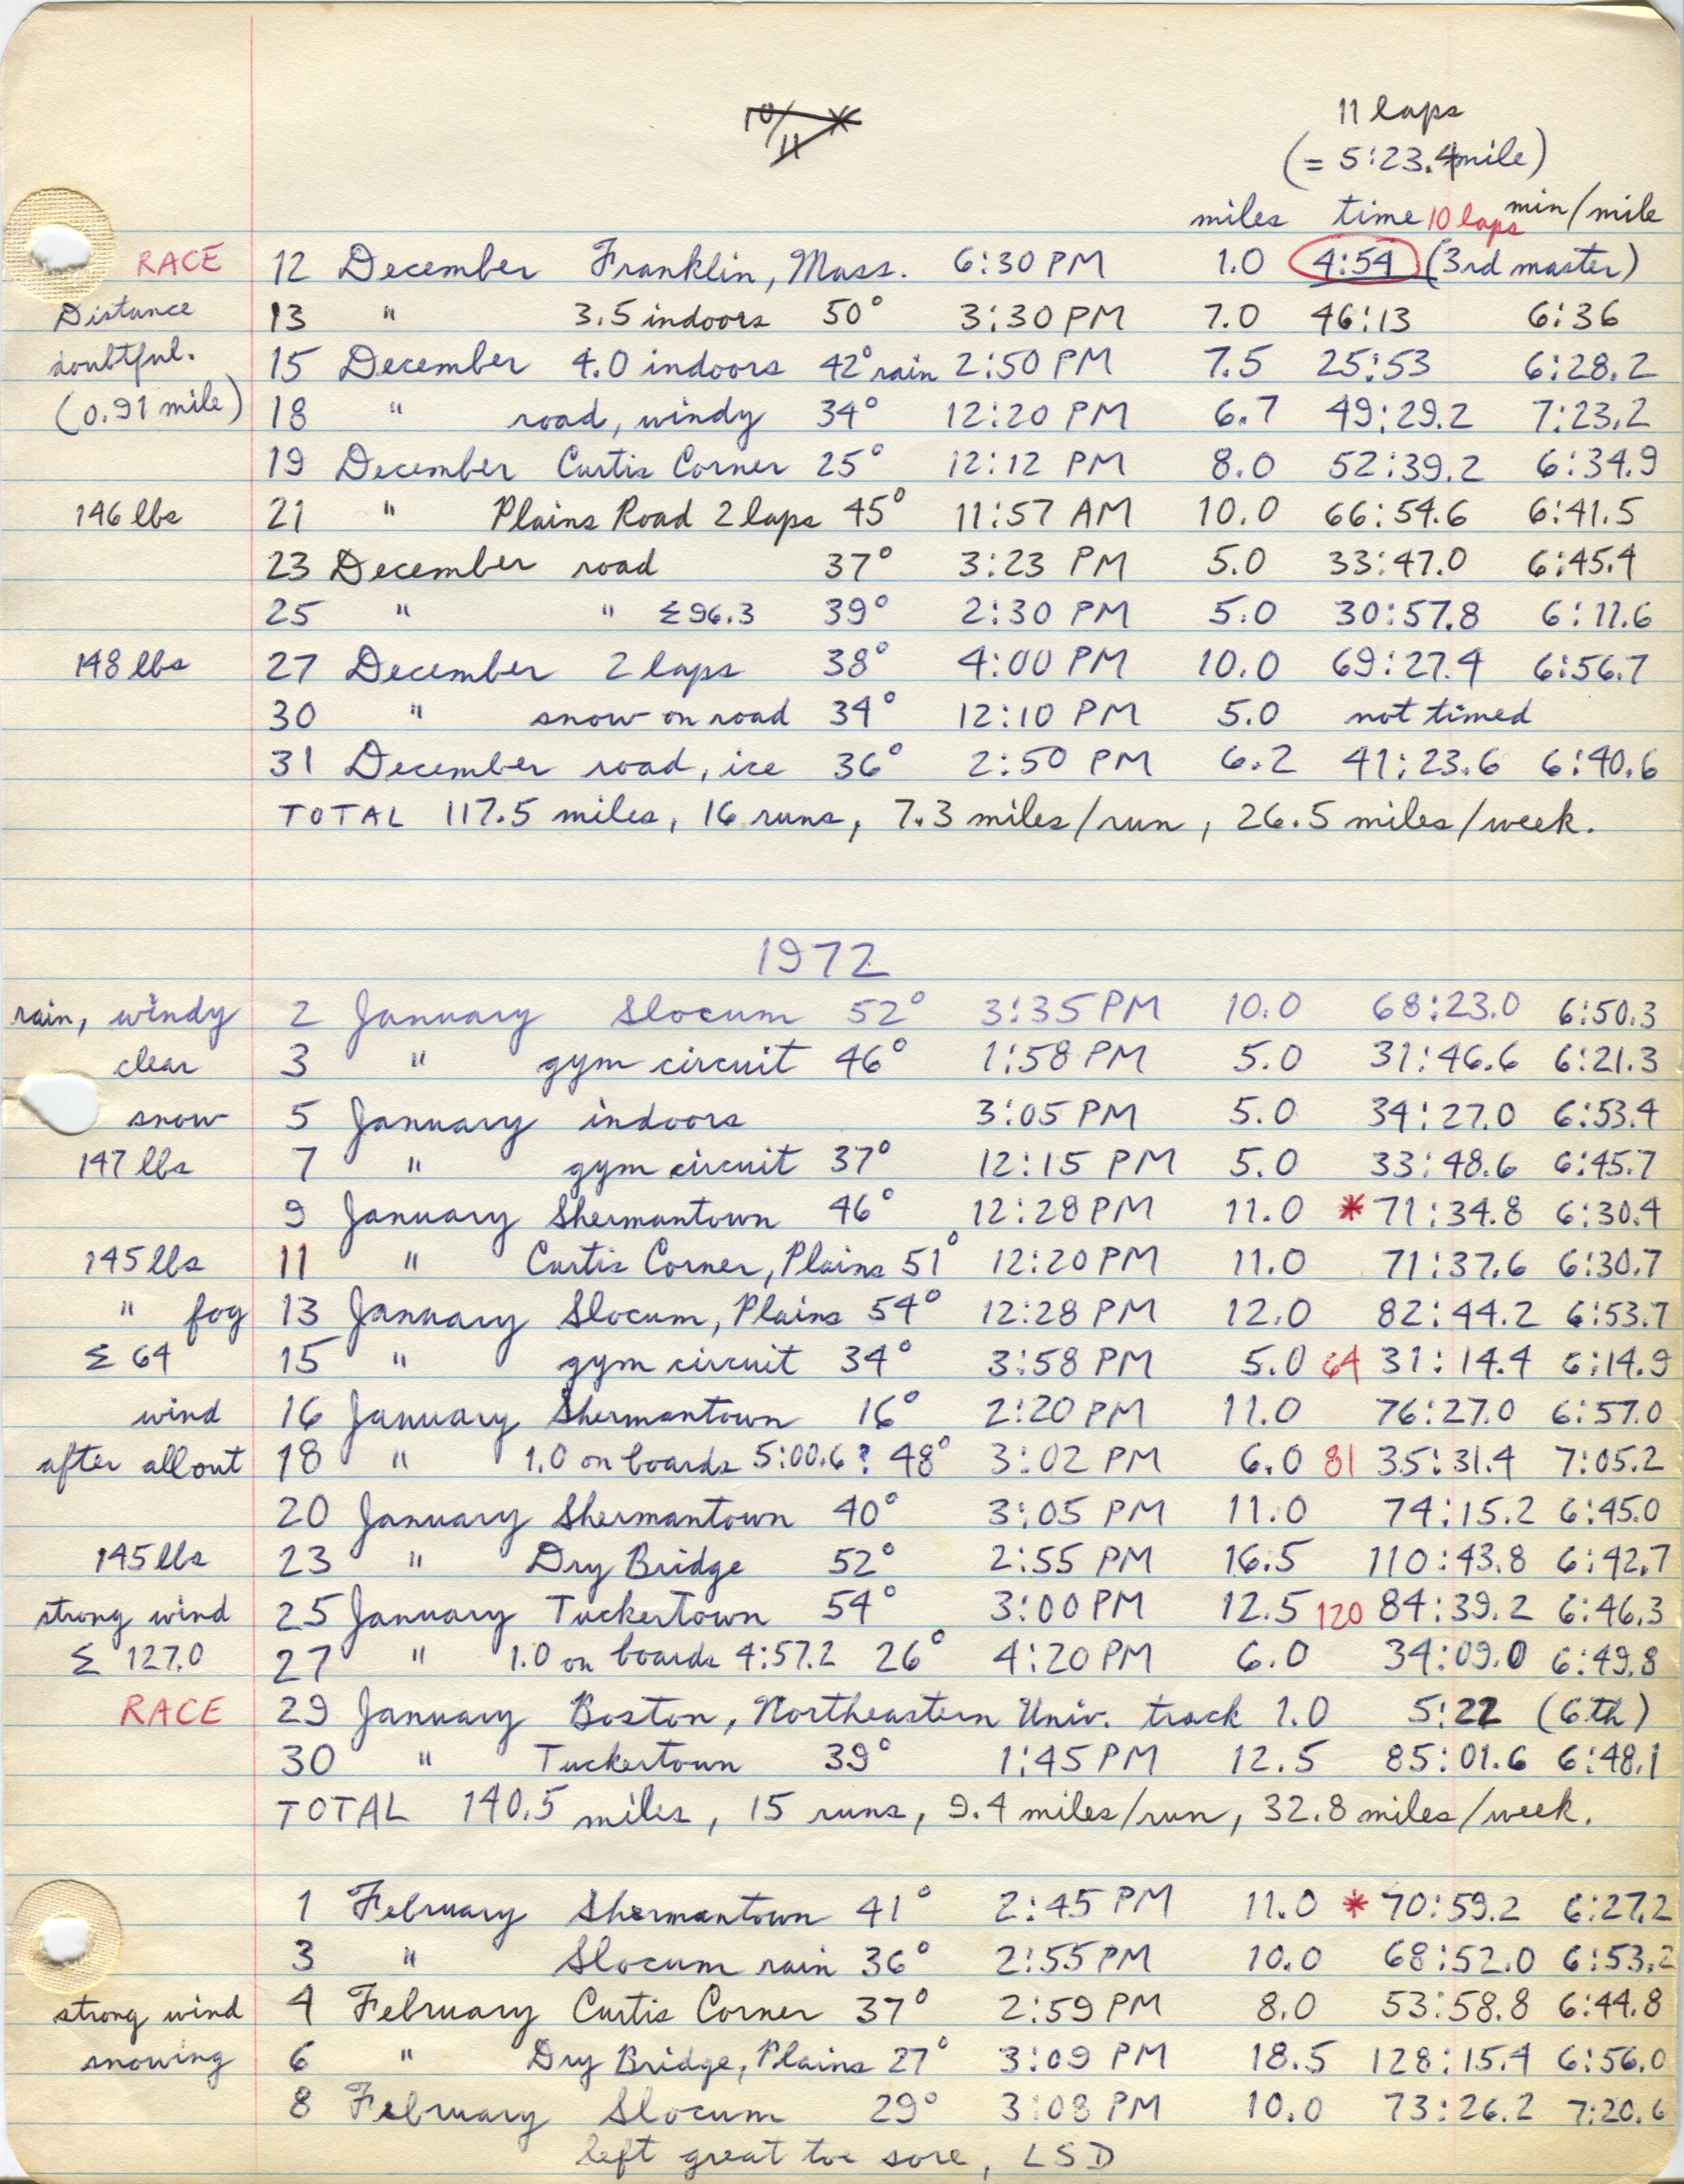 11 laps
(= 5:23.4 mile)
miles time 10 laps min/mile
RACE 12 December Franklin, Mass. 6:30 PM 1.0 4:54 (3rd master)
Distance 13 " 3.5 indoors 50° 3:30 PM 7.0 46:13 6:36
doubtful. 15 December 4.0 indoors 42° rain 2:50 PM 7.5 25:53 6:28.2
(0.91 mile) 18 " road, windy 34° 12:20 PM 6.7 49:29.2 7:23.2
19 December Curtis Corner 25° 12:12 PM 8.0 52:39.2 6:34.9
146 lbs 21 " Plains Road 2 laps 45° 11:57 AM 10.0 66:54.6 6:41.5
23 December road 37° 3:23 PM 5.0 33:47.0 6:45.4
25 " " Σ96.3 39° 2:30 PM 5.0 30:57.8 6:11.6
148 lbs 27 December 2 laps 38° 4:00 PM 10.0 69:27.4 6:56.7
30 " snow on road 34° 12:10 PM 5.0 not timed
31 December road, ice 36° 2:50 PM 6.2 41:23.6 6:40.6
TOTAL 117.5 miles, 16 runs, 7.3 miles/run, 26.5 miles/week.
1972
rain, windy 2 January Slocum 52° 3:35 PM 10.0 68:23.0 6:50.3
clear 3 " gym circuit 46° 1:58 PM 5.0 31:46.6 6:21.3
snow 5 January indoors 3:05 PM 5.0 34:27.0 6:53.4
147 lbs 7 " gym circuit 37° 12:15 PM 5.0 33:48.6 6:45.7
9 January Shermantown 46° 12:28 PM 11.0 * 71:34.8 6:30.4
145 lbs 11 " Curtis Corner, Plains 51° 12:20 PM 11.0 71:37.6 6:30.7
" fog 13 January Slocum, Plains 54° 12:28 PM 12.0 82:44.2 6:53.7
Σ 64 15 " gym circuit 34° 3:58 PM 5.0 64 31:14.4 6:14.9
wind 16 January Shermantown 16° 2:20 PM 11.0 76:27.0 6:57.0
after all out 18 " 1.0 on boards 5:00.6? 48° 3:02 PM 6.0 81 35:31.4 7:05.2
20 January Shermantown 40° 3:05 PM 11.0 74:15.2 6:45.0
145 lbs 23 " Dry Bridge 52° 2:55 PM 16.5 110:43.8 6:42.7
strong wind 25 January Tuckertown 54° 3:00 PM 12.5 120 84:39.2 6:46.3
Σ 127.0 27 " 1.0 on boards 4:57.2 26° 4:20 PM 6.0 34:09.0 6:49.8
RACE 29 January Boston, Northeastern Univ. track 1.0 5:22 (6th)
30 " Tuckertown 39° 1:45 PM 12.5 85:01.6 6:48.1
TOTAL 140.5 miles, 15 runs, 9.4 miles/run, 32.8 miles/week.
1 February Shermantown 41° 2:45 PM 11.0 * 70:59.2 6:27.2
3 " Slocum rain 36° 2:55 PM 10.0 68:52.0 6:53.2
strong wind 4 February Curtis Corner 37° 2:59 PM 8.0 53:58.8 6:44.8
snowing 6 " Dry Bridge, Plains 27° 3:09 PM 18.5 128:15.4 6:56.0
8 February Slocum 29° 3:08 PM 10.0 73:26.2 7:20.6
left great toe sore, LSD